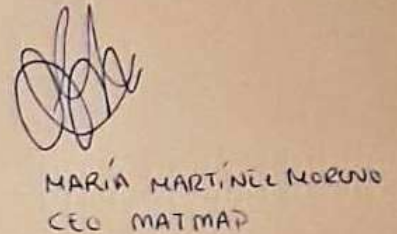 MARÍA MARTÍNEZ MORENO
CEO MATMAP